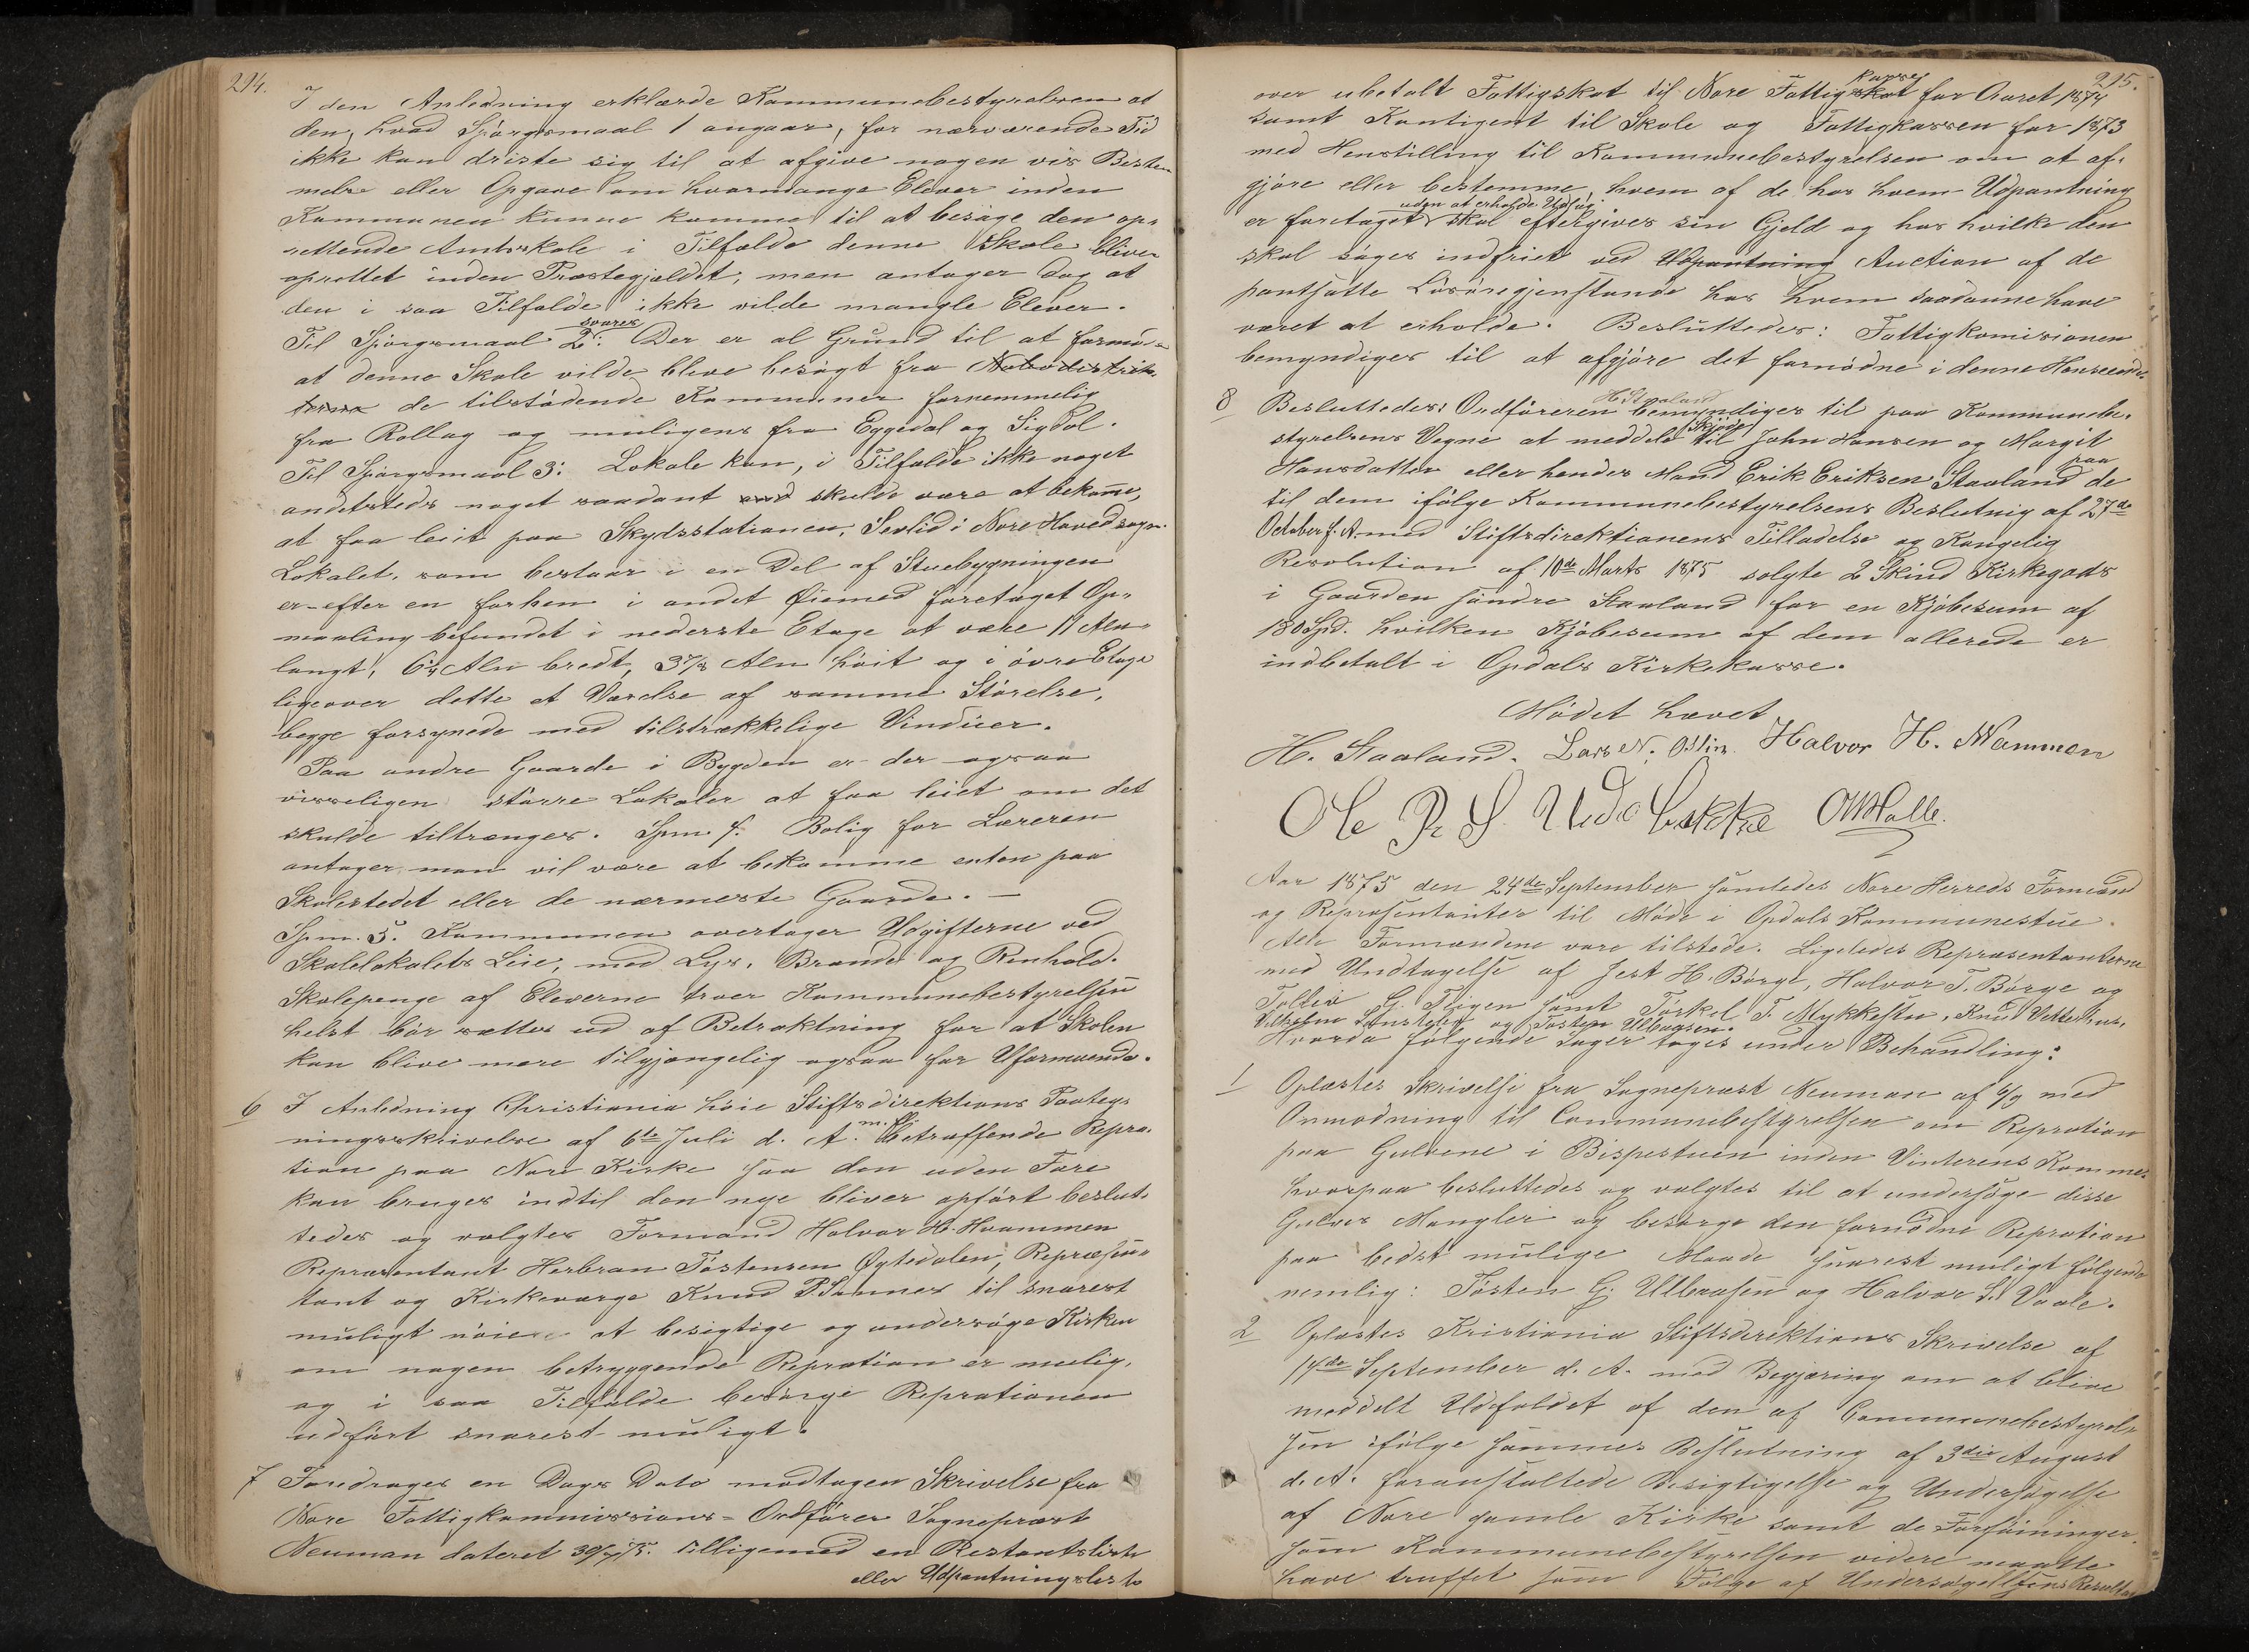 294.
I den Anledning erklærde Kommunebestyrelsen at
den, hvad Spörgsmaal 1 angaar, for nærværende Tid
ikke kan driste sig til at afgive nogen vis Bestem
melse eller Opgave om hvormange Elever inden
Kommunen kunne komme til at besöge den op-
rettende Amtsskole i Tilfælde denne Skole bliver
oprettet inden Præstegjældet; men antager dog at
den i saa Tilfælde ikke vilde mangle Elever.
Til Spörgsmaal 2: svares Der er al Grund til at formo-
at denne Skole vilde blive besögt fra Nabodistrik
terne de tilstödende Kommuner fornemmelig
fra Rollag og muligens fra Eggedal og Sigdal.
Til Spörgsmaal 3: Lokale kan, i Tilfælde ikke noget
andetsteds noget saadant skulde være at bekome,
at faa leiet paa Skydsstationen, Sevlid i Nore Hovedsogn.
Lokalet, som bestaar i en Del af Stuebygningen
er efter en forhen i andet Øiemed foretaget Op-
maaling befundet i nederste Etage at være 11 Alen
langt, 6½ Alen bredt, 3⅞ Alen höit og i övre Etage
ligeover dette et Værelse af samme Störelse,
begge forsynede med tilstrækkelige Vinduer.
Paa andre Gaarde i Bygden er der ogsaa
visseligen större Lokaler at faa leiet om det
skulde tiltrænges. Spm. 4. Bolig for Læreren
antager man vil være at bekomme enten paa
Skolestedet eller de nærmeste Gaarde. —
Spm. 5. Kommunen overtager Udgifterne ved
Skolelokalets Leie, med Lys, Brænde og Renhold.
Skolepenge af Eleverne troer Kommunebestyrelsen
helst bör sættes ud af Betraktning for at Skolen
kan blive mere tilgjængelig ogsaa for Uformuende.
6 I Anledning Christiania höie Stiftsdirektions Paateg-
ningsskrivelse af 6te Juli d. A. m. fl. betræffende Repra-
tion paa Nore Kirke saa den uden Fare
kan bruges indtil den nye bliver opfört beslut-
tedes og valgtes Formand Halvor H. Hvammen
Repræsentant Herbran Tostensen Øytedalen, Repræsen-
tant og Kirkeværge Knud P. Sønnes til snarest
muligt nöie at besigtige og undersöge Kirken
om nogen betryggende Repration er mulig,
og i saa Tilfælde besörge Reprationen
udfört snarest muligt.
7 Foredrages en Dags Dato modtagen Skrivelse fra
Nore Fattigkommissions-Ordförer Sogneprest
Neuman dateret 30/7 75. tilligemed en Restantsliste
eller Udpantningsliste
295.
over ubetalt Fattigskat til Nore Fattigskat kasse for Aaret 1874
samt Kontigent til Skole og Fattigkassen for 1873
med Henstilling til Kommunebestyrelsen om at af-
gjöre eller bestemme, hvem af de hos hvem Udpantning
er foretaget uden at erholde Udlæg skal eftergives sin Gjeld og hos hvilke den
skal söges indfriet ved Udpantning Auction af de
pantsatte Lösöregjenstande hos hvem saadanne have
været at erholde. Besluttedes: Fattigkomisionen
bemyndiges til at afgjöre det fornödne i denne Henseende.
8 Besluttedes: Ordföreren H. Staaland bemyndiges til paa Kommunebe-
styrelsens Vegne at meddele Skjöde til John Hansen og Margit
Hansdatter eller hendes Mand Erik Eriksen Staaland paa de
til dem ifölge Kommunebestyrelsens Beslutnig af 27de
October f. A. med Stiftsdirektionens Tilladelse og Kongelig
Resolution af 10de Marts 1875 solgte 2 Skind Kirkegods
i Gaarden söndre Staaland for en Kjöbesum af
180 Spd. hvilken Kjöbesum af dem allerede er
indbetalt i Opdals Kirkekasse.
Mödet hævet
H. Staaland. Lars N. Halvor H. Wammen
Ole
Aar 1875 den 24de September samledes Nore Herreds Formænd
og Repræsentanter til Möde i Opdals Kommunestue.
Alle Formændene vare tilstede. Ligeledes Repræsentanterne
med Undtagelse af Jest H. Börge, Halvor T. Börge og
Tollev G. Teigen samt Torkel T. Mykkestu, Knud Vetterhus,
og Tosten Ulbaasen.
Hvorda fölgende Sager toges under Behandling:
1 Oplæstes Skrivelse fra Sogneprest Neuman af 6/9 med
Anmodning til Communebestyrelsen om Repration
paa Gulvene i Bispestuen inden Vinterens Komme,
hvorpaa besluttedes og valgtes til at undersöge disse
Gulves Mangler og besörge den fornödne Repration
paa bedst mulige Maade snarest muligt fölgende
nemlig: Tosten G. Ulbaasen og Halvor S. Vaale.
2 Oplæstes Kristiania Stiftsdirektions Skrivelse af
14de September d. A. med Begjæring om at blive
meddelt Udfaldet af den af Communebestyrel-
sen ifölge sammes Beslutning af 3die August
d. A. foranstaltede Besigtigelse og Undersögelse
af Nore gamle Kirke samt de Forföininger,
som Kommunebestyrelsen videre maatte
have truffet som Fölge af Undersögelsens Resultat